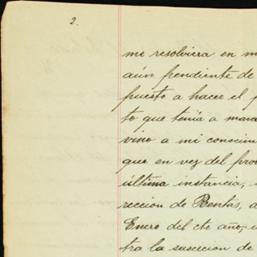 2.
me resolviera en m
aún pendiente de
puesto a hacer el p
to que tenía a mara
vino a mi conocim
que en vez del prov
última instancia,
rección de Rentas, a
Enero del cte año, i
tra la suscrción de